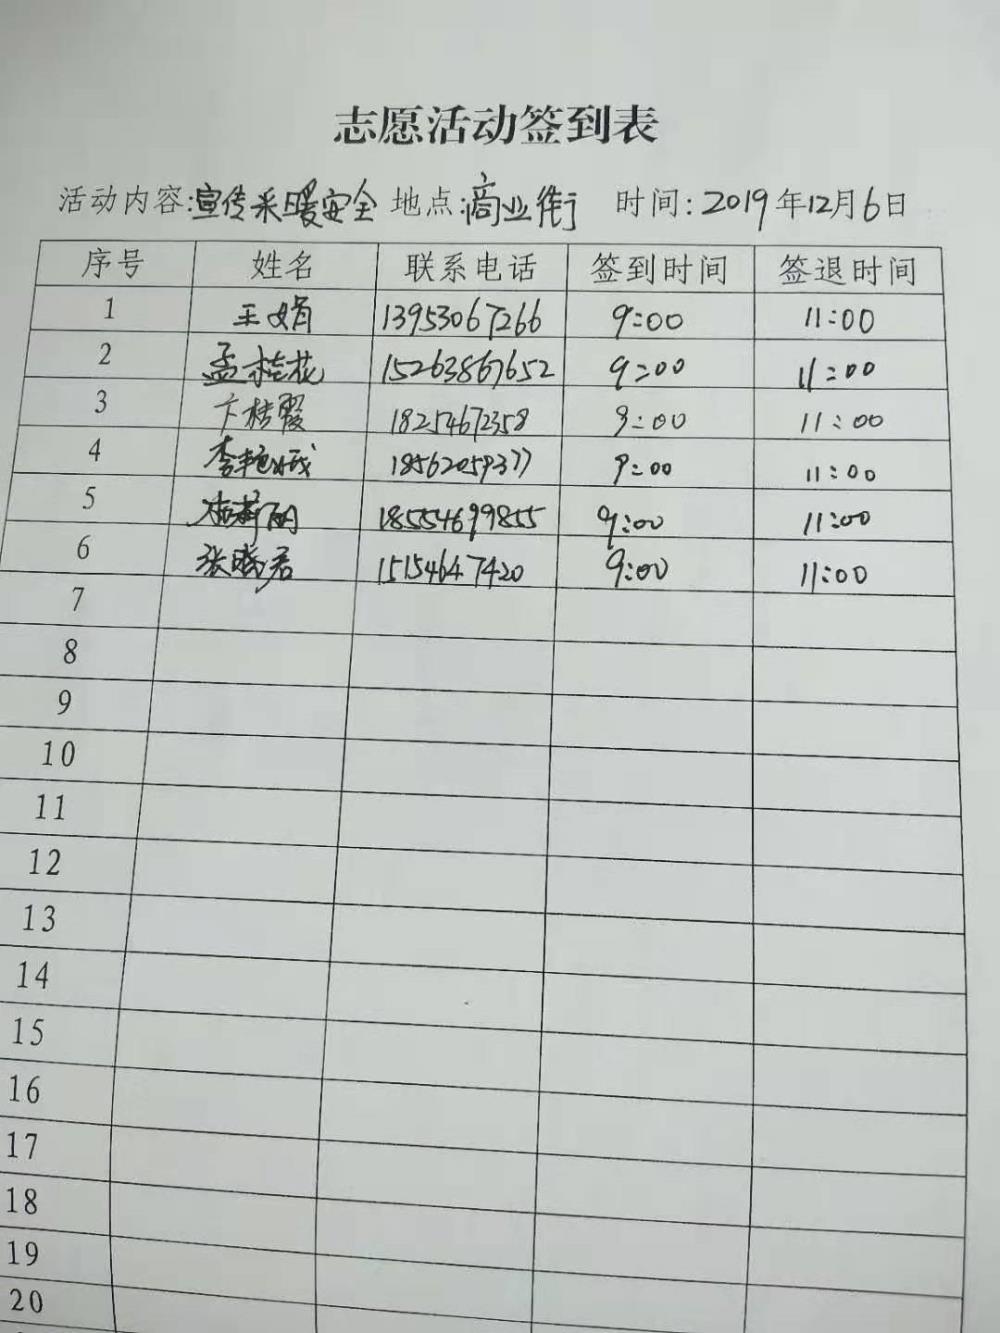 志愿活动签到表
活动内容:宣传采暖安全 地点:商业街 时间:2019年12月6日
序号 姓名 联系电话 签到时间 签退时间
1 王娟 13953067266 9:00 11:00
2 孟桂花 15263867652 9:00 11:00
3 卞桂霞 18254672358 9:00 11:00
4 李艳 18562059377 9:00 11:00
5 18554699855 9:00 11:00
6 张晓君 15154647420 9:00 11:00
7
8
9
10
11
12
13
14
15
16
17
18
19
20